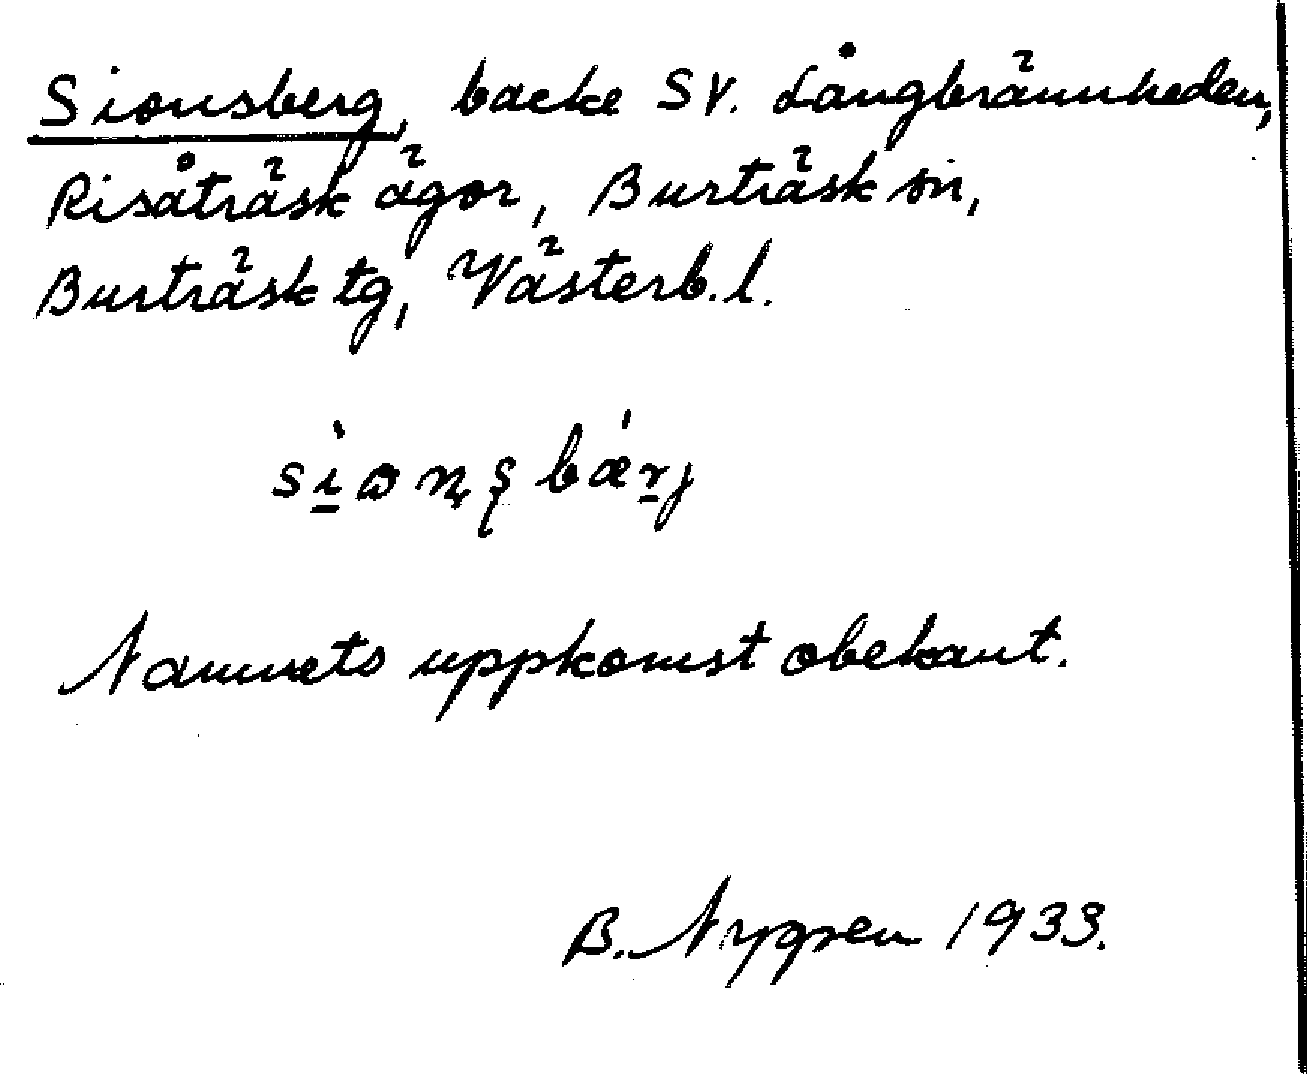 Sionsberg, backe SV. Långbrännheden,
Risåträsk ägor, Burträsk sn,
Burträsk tg, Västerb. l.
Namnets uppkomst obekant.
B. Nygren 1933.